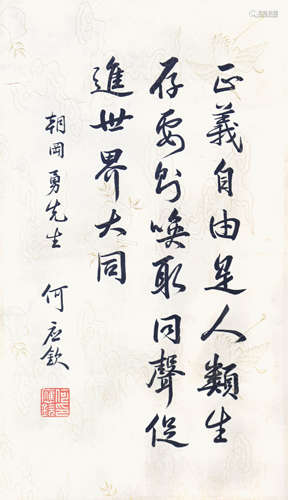 正義自由是人類生
存要則喚取同聲促
進世界大同
朝岡勇先生 何应欽